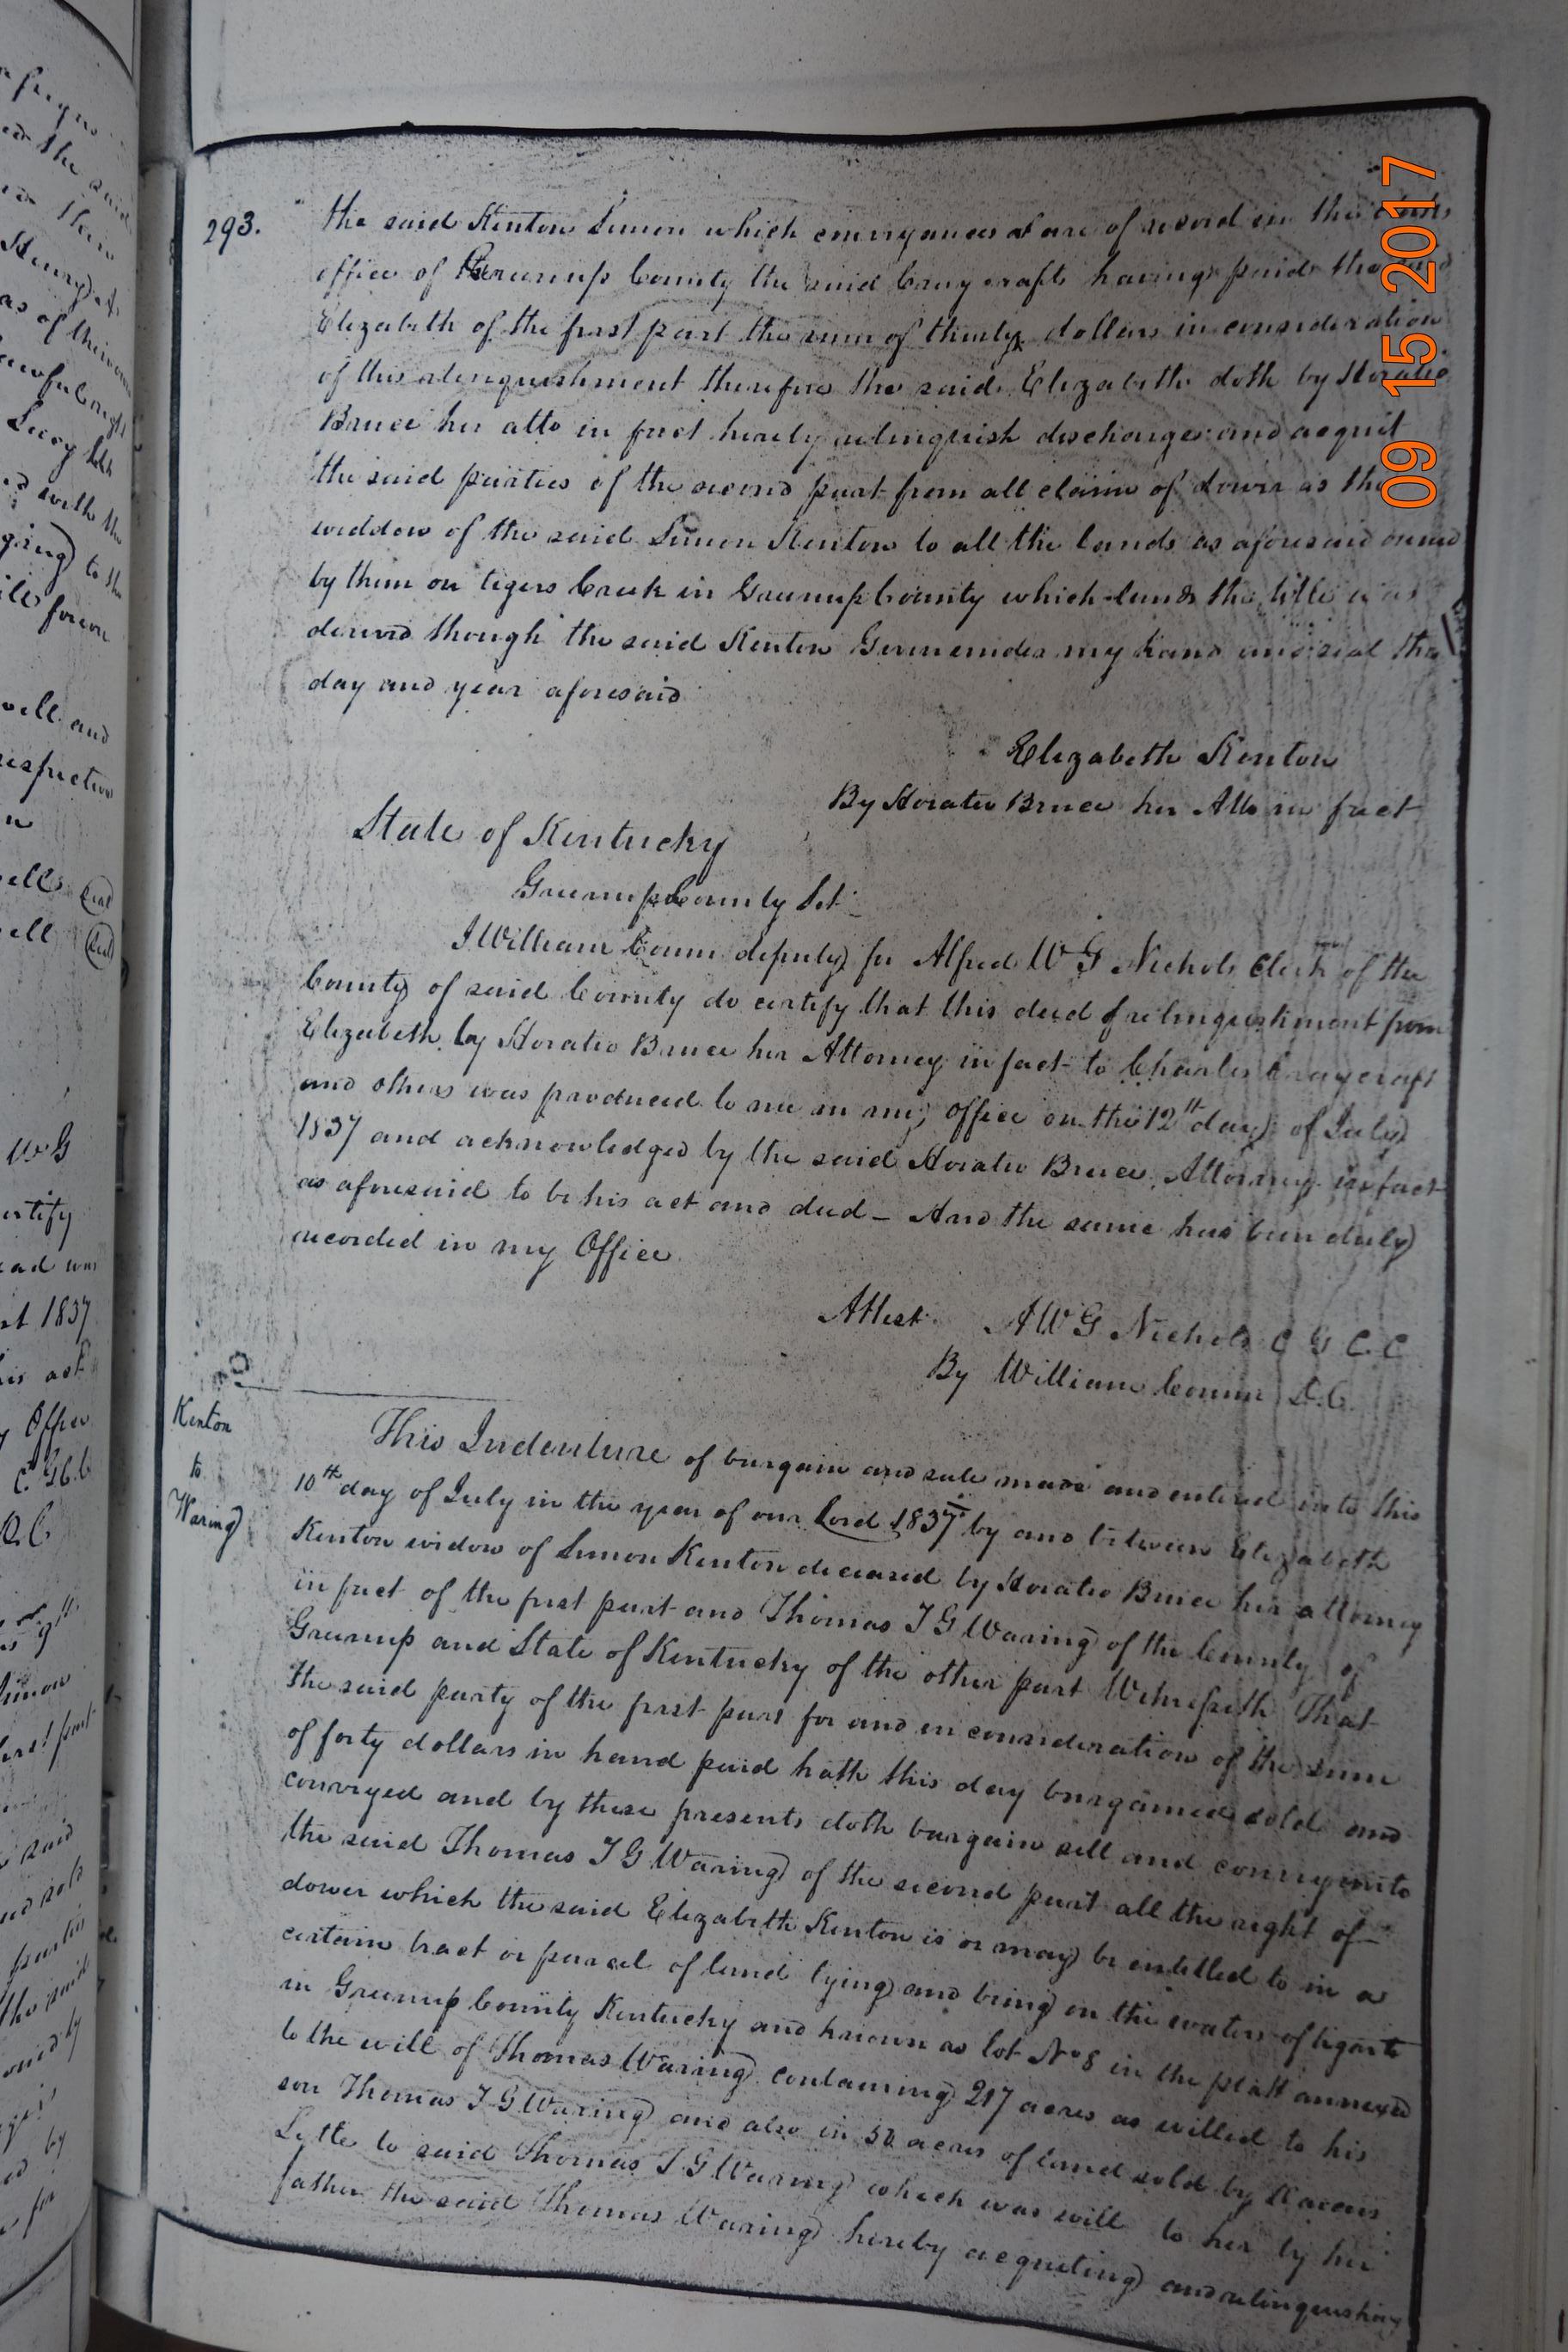 293.
the said Kenton Simon which conveyances at are of record in the clerks
office of Greenup County the said Craycraft having paid the said
Elizabeth of the first part the sum of thirty dollars in consideration
of this relinquishment therefore the said Elizabeth doth by Horatio
Bruce her atto in fact hereby relinquish discharge and acquit
the said parties of the second part from all claim of dower as the
widdow of the said Simon Kenton to all the lands as aforesaid owned
by them on tigers Creek in Greenup County which lands the title was
derived though the said Kenton Given under my hand and seal the
day and year aforesaid
Elizabeth Kenton
By Horatio Bruce her Atto in fact
State of Kentucky
Greenup County Sct
I William Conn deputy for Alfred W G Nichols Clerk of the
County of said County do certify that this deed f relinquishment from
Elizabeth by Horatio Bruce her Attorney in fact to Charles Craycraft
and others was produced to me in my office on the 12th day of July
1837 and acknowledged by the said Horatio Bruce Attorney in fact
as aforesaid to be his act and deed – And the same has been duly
recorded in my Office
Attest A W G Nichols C G C. C
By William Conn D.C.
Kenton
to
Waring
This Indenture of bargain and sale made and entered into this
10th day of July in the year of our Lord 1837 by and between Elizabeth
Kenton widow of Simon Kenton deceased by Horatio Bruce her attorney
in fact of the first part and Thomas T G Waring of the County of
Greenup and State of Kentucky of the other part Witnesseth That
the said party of the first part for and in consideration of the sum
of forty dollars in hand paid hath this day bargained sold and
conveyed and by these presents doth bargain sell and convey unto
the said Thomas T G Waring of the second part all the right of
dower which the said Elizabeth Kenton is or may be entitled to in a
certain tract or parcel of land lying and being on the waters of tigarts
in Greenup County Kentucky and known as lot No 8 in the platt annexed
to the will of Thomas Waring containing 217 acres as willed to his
son Thomas T G Waring and also in 50 acres of land sold by
Lytle to said Thomas T G Waring which was will to her by her
father the said Thomas Waring hereby acquiting and relinquishing
09 15 2017